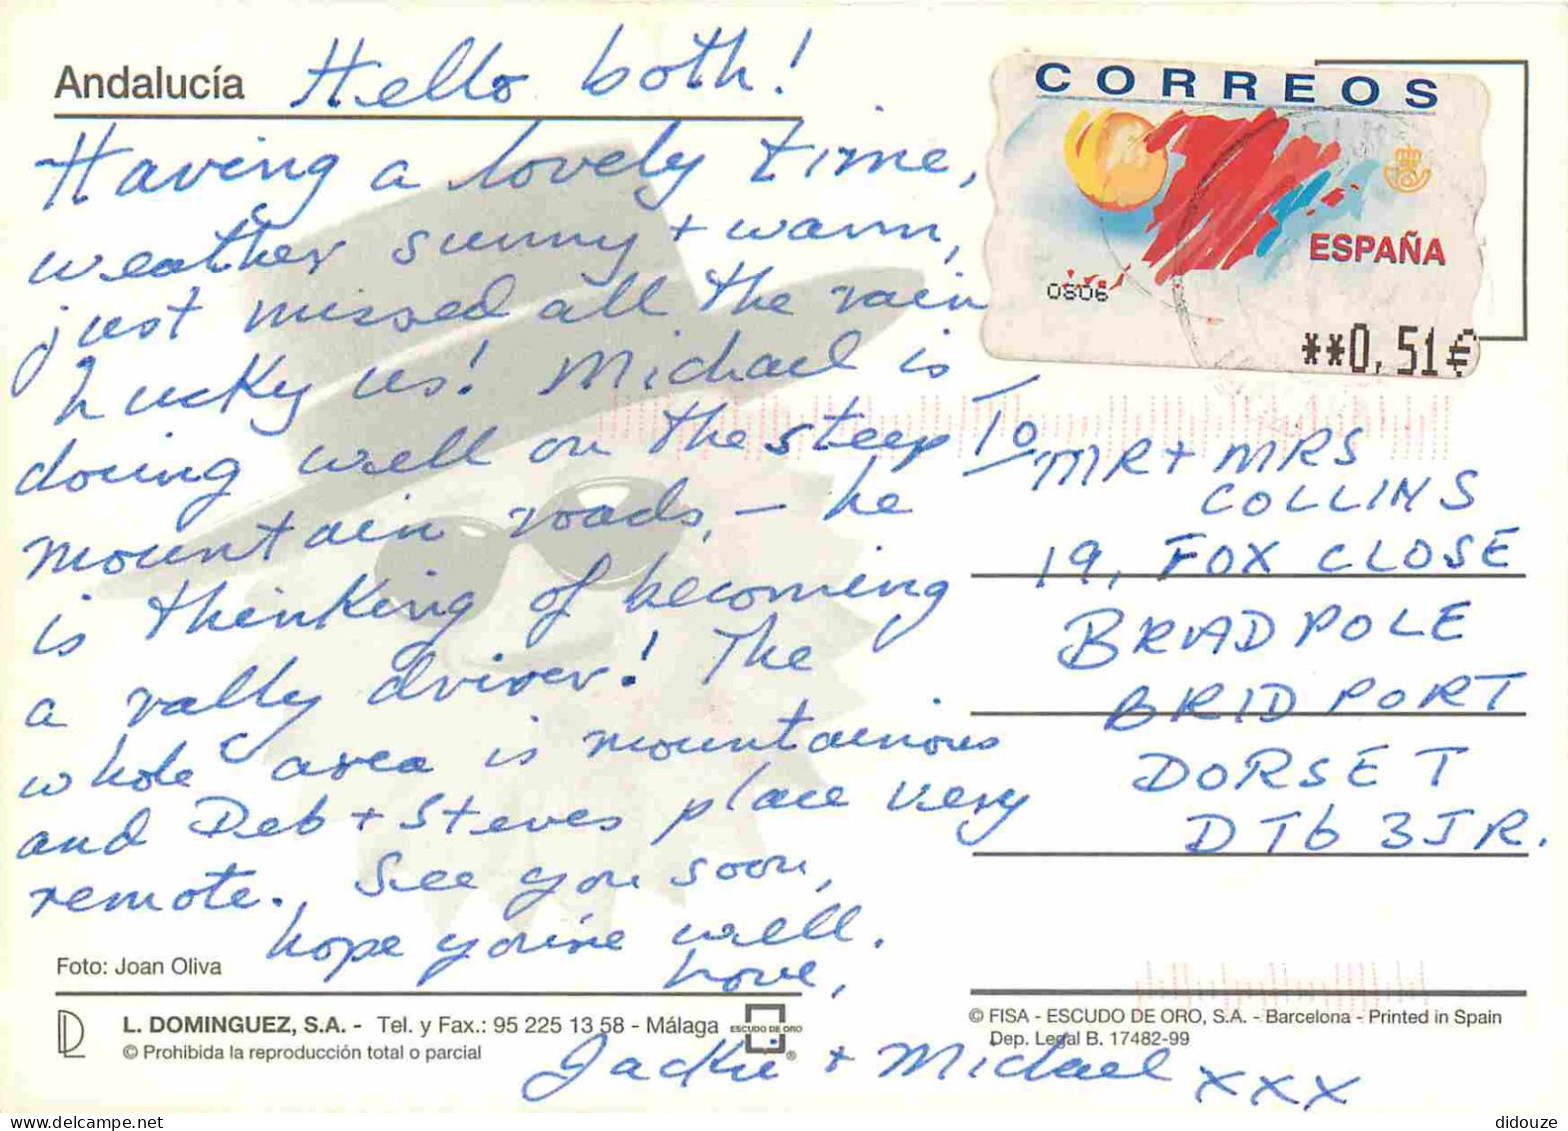 Andalucía
Hello both!
Having a lovely time,
weather sunny + warm,
just missed all the rain
Lucky us! Michael is
doing well on the steep
mountain roads, – he
is thinking of becoming
a rally driver! The
whole area is mountainous
and Deb + Steves place very
remote. See you soon,
hope you're well.
Love,
Jackie + Michael xxx
CORREOS
ESPAÑA
0806
**0,51€
To
MR + MRS
COLLINS
19, FOX CLOSE
BRADPOLE
BRIDPORT
DORSET
DT6 3JR.
Foto: Joan Oliva
L. DOMINGUEZ, S.A. - Tel. y Fax.: 95 225 13 58 - Málaga
© Prohibida la reproducción total o parcial
ESCUDO DE ORO
®
© FISA - ESCUDO DE ORO, S.A. - Barcelona - Printed in Spain
Dep. Legal B. 17482-99
didouze